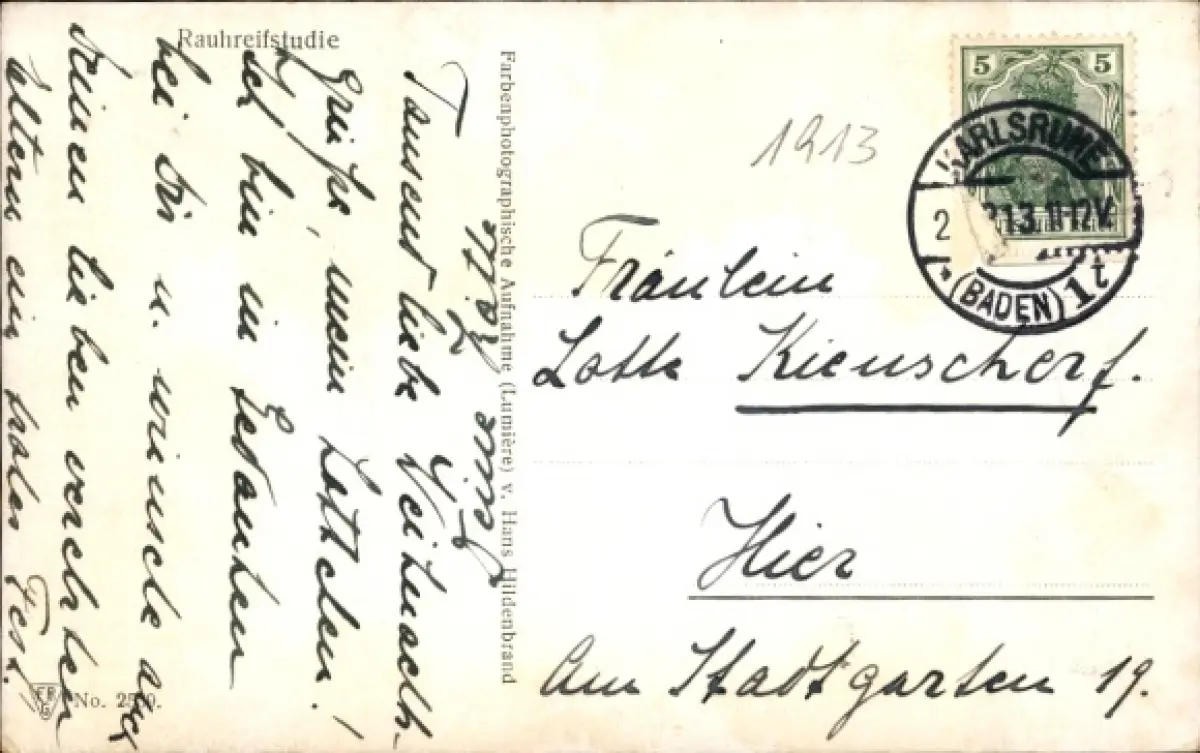 Rauhreifstudie
Tausend liebe Weihnach-
Grüße, mein Lottchen!
Ich bin in Gedanken
bei Dir u. wünsche auch
Deinen lieben verehrten
Eltern ein frohes Fest.
Farbenphotographische Aufnahme (Lumière) v. Hans Hildenbrand
No.
1913
5 5
KARLSRUHE
2 13 11-12V.
* (BADEN) 1t
Fräulein
Lotte Kienscherf.
Hier
Am Stadtgarten 19.